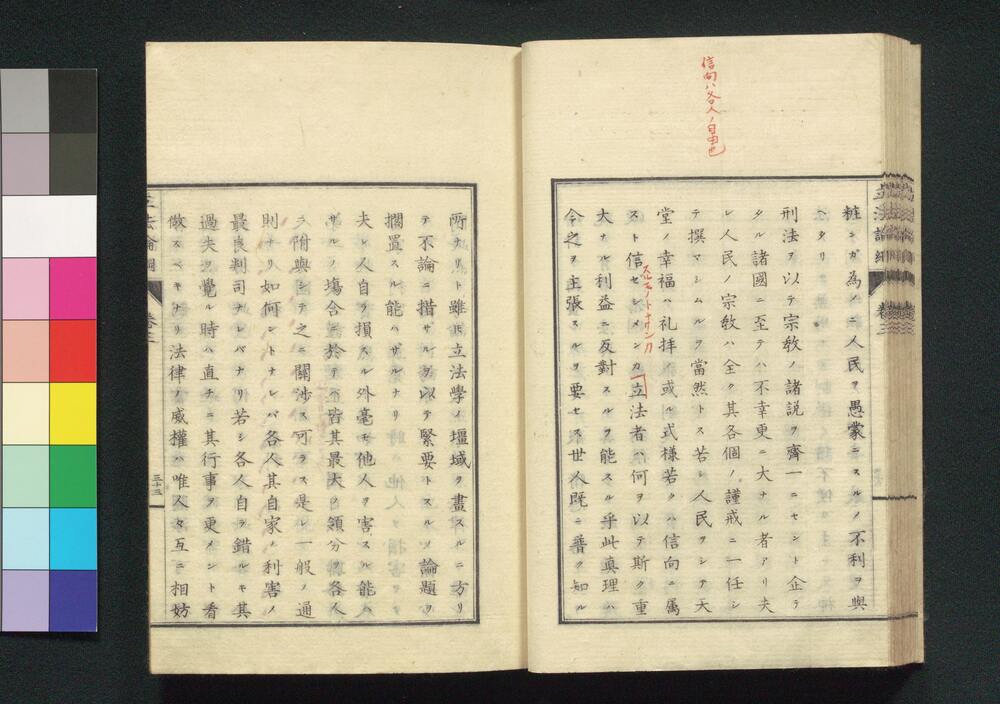 信向ハ各人ノ自由也
立法論綱 巻三
粧シガ為メニ人民ヲ愚蒙ニスルノ不利ヲ與
ヘタリ
刑法ヲ以テ宗教ノ諸説ヲ齊一ニセント企テ
タル諸國ニ至テハ不幸更ニ大ナル者アリ夫
レ人民ノ宗教ハ全ク其各個ノ謹戒ニ一任シ
テ撰マシムルヲ當然トス若シ人民ヲシテ天
堂ノ幸福ハ礼拝ノ或ル式様若クハ信向ニ属
スルモノトナサンカ
スト信セシメンカ立法者ハ何ヲ以テ斯ク重
大ナル利益ニ反對スルヲ能スル乎此真理ハ
今之ヲ主張スルヲ要セス世人既ニ普ク知ル
所ナリト雖𪜈立法學ノ壇域ヲ畫スルニ方リ
テ不論ニ措サルヲ以テ緊要トスルノ論題ヲ
擱置スル能ハザルナリ
夫レ人自ラ損スル外毫モ他人ヲ害スル能ハ
サルノ場合ニ於テハ皆其最大ノ領分ヲ各人
ニ附與シテ之ニ關渉ス可ラス是レ一般ノ通
則ナリ如何ントナレバ各人其自家ノ利害ノ
最良判司ナレバナリ若シ各人自ラ錯ルキ其
過失ヲ覺ル時ハ直チニ其行事ヲ更メント看
做スベキナリ法律ノ威權ハ唯人々互ニ相妨
立法論綱 巻三 三十三